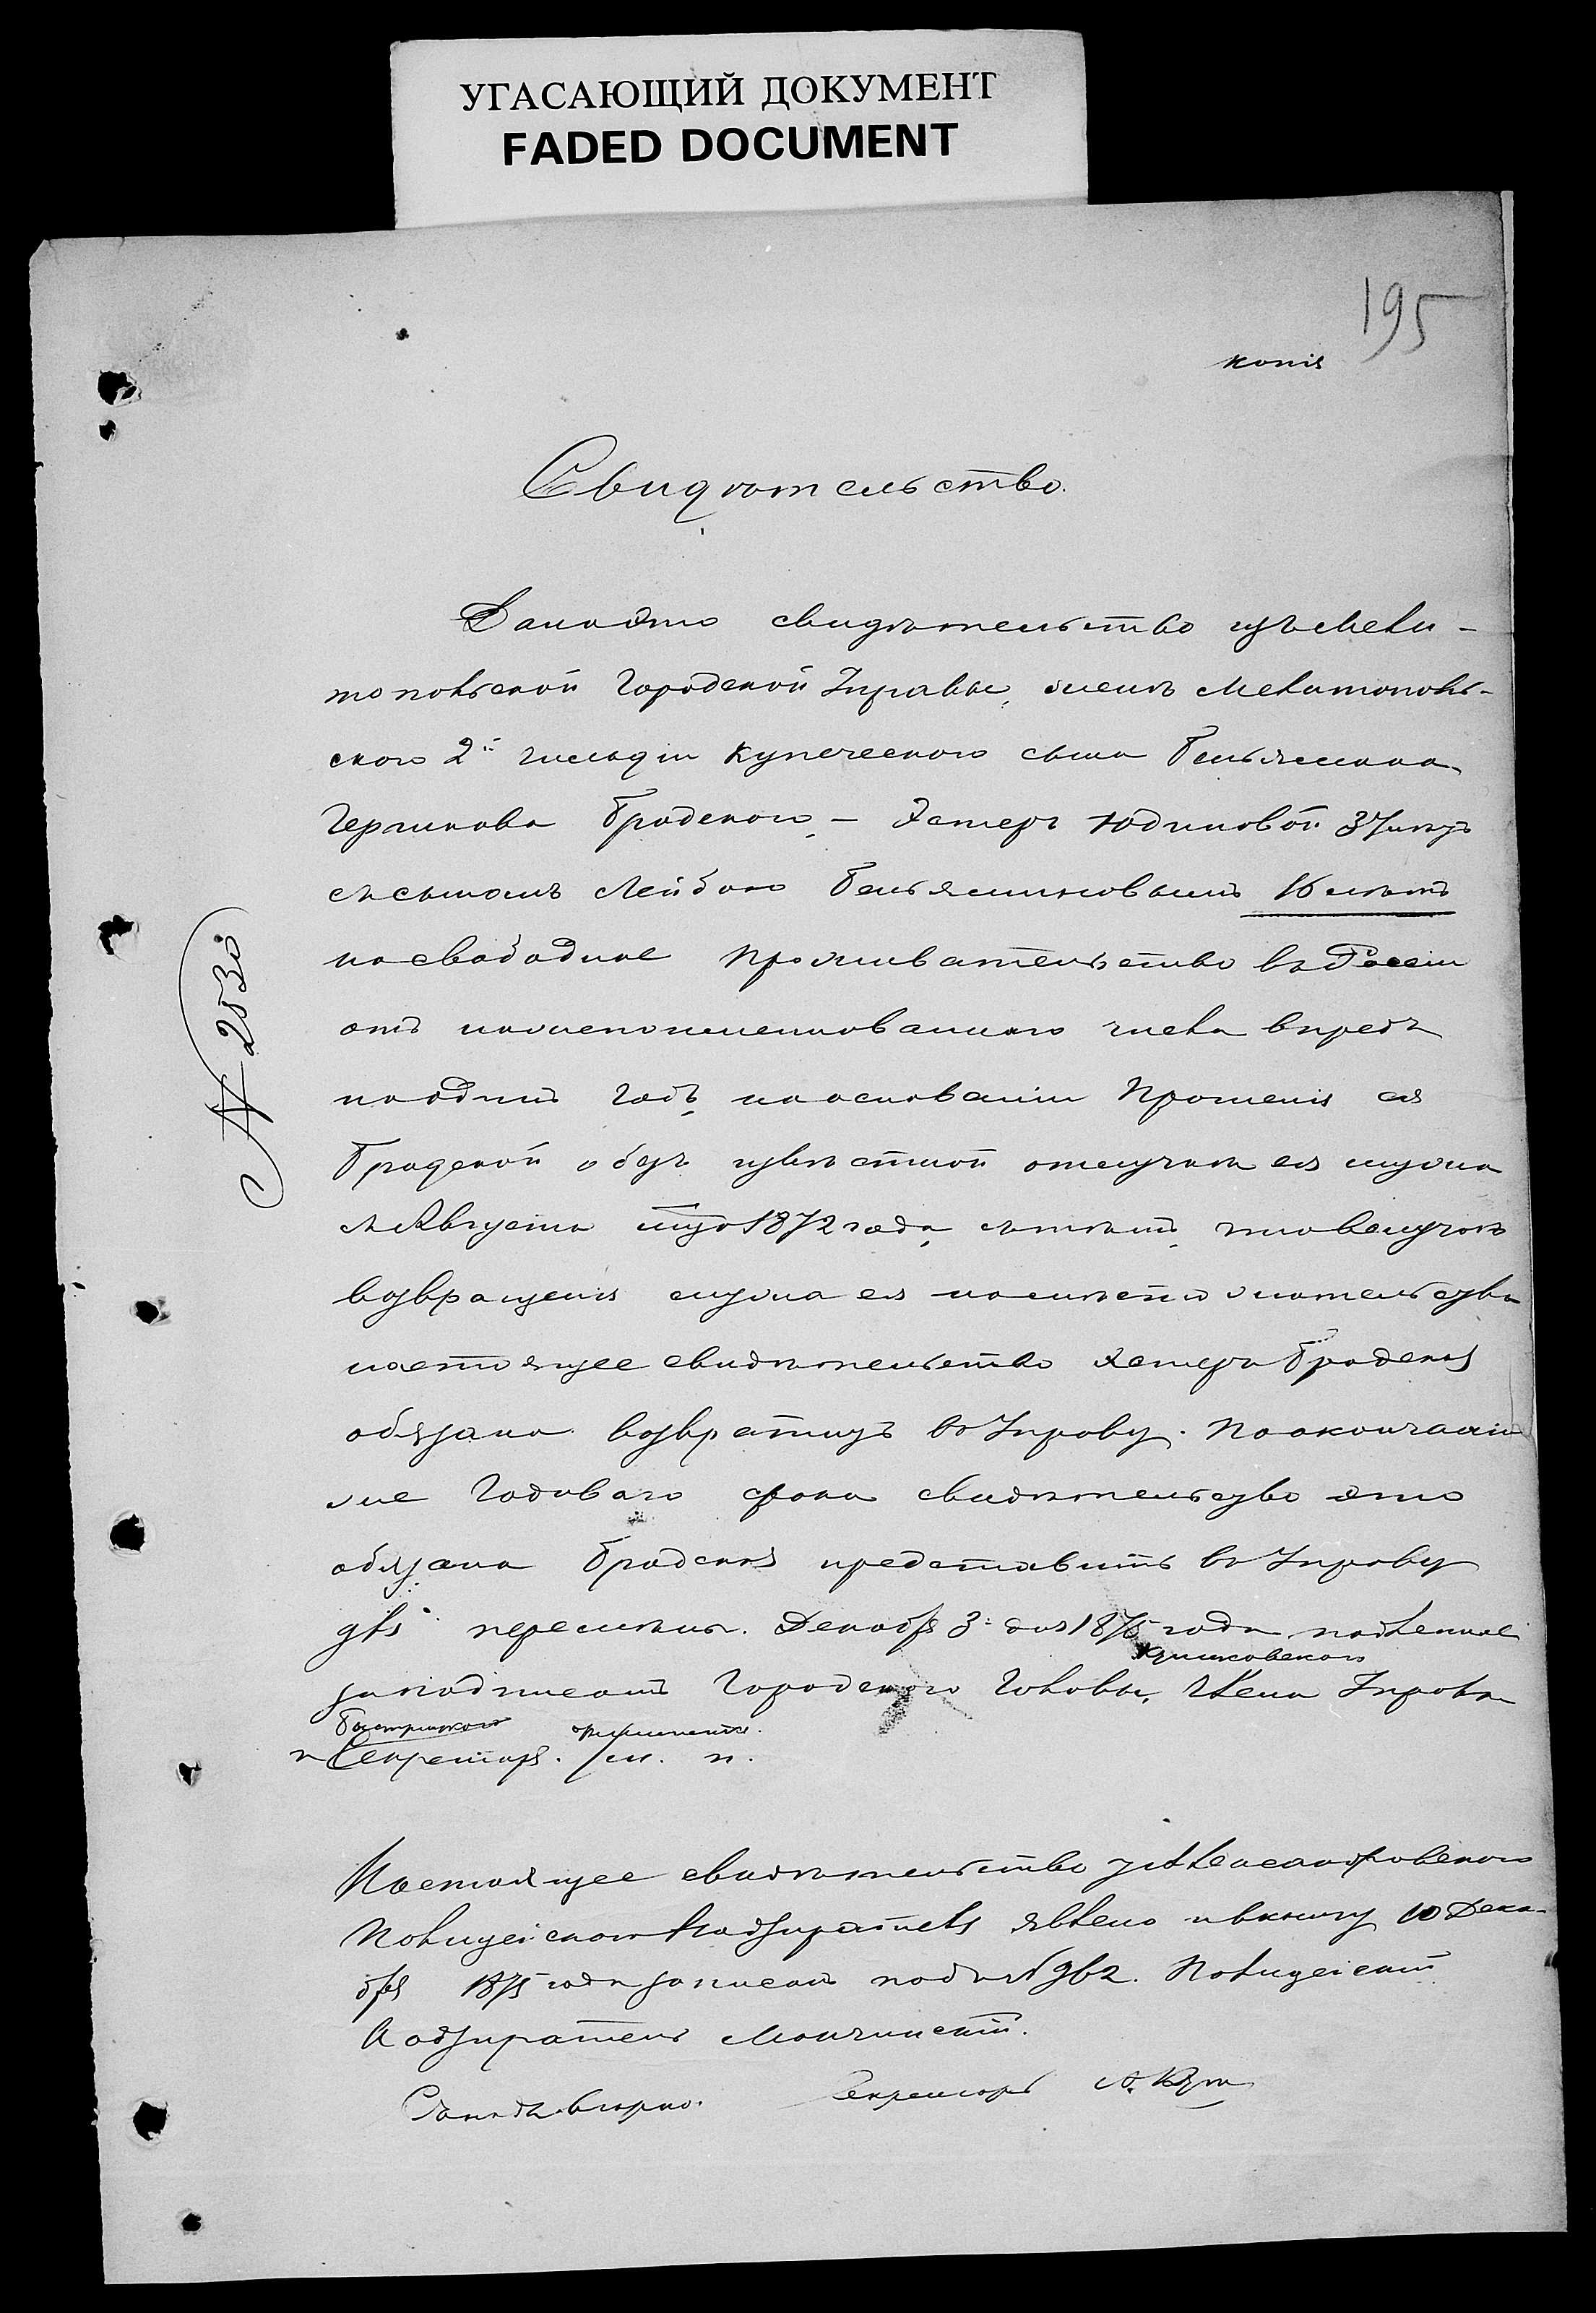 УГАСАЮЩИЙ ДОКУМЕНТ
FADED DOCUMENT
195
копія
Свидѣтельство.
Дано это свидѣтельство изъ Мели-
топольской Городской Управы, женѣ Мелитополь-
ского 2й гильдіи купеческого сына Беньямина
Гершкова Бродского, – Эстеръ Юдиновой 37 лѣтъ
съ сыномъ Лейбою Беньяминовымъ 16 лѣтъ
на свободное проживательство въ Россіи
отъ нижепоименованного числа впредъ
на одинъ годъ, на основаніи прошенія ея
Бродской о безъизвѣстной отлучкѣ ея мужа
съ Августа 1872 года, съ тѣмъ, что въ случаѣ
возвращенія мужа ея на мѣсто жительства
настоящее свидѣтельство Эстеръ Бродская
обязана возвратить въ Управу. По окончаніи
же Годоваго срока свидѣтельство это
обязана Бродская представить въ Управу
для перемѣны. Декабря 3 дня 1875 года подлинное
за подписомъ Городского Головы, Члена Управы
и Секретаря. м. п.
№ 2530
Настоящее свидѣтельство у Александровского
Полицейского Надзирателя явлено и въ книгу 10 Дека-
бря 1875 года записано подъ № 962. Полицейскій
Надзиратель
Съ подл. вѣрно. Секретарь